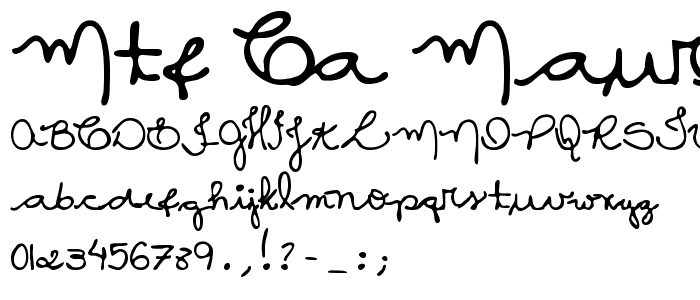 Mtf Ca Maur
ABCDEFGHIJKLMNOPQRSTU
abcdefghijklmnopqrstuvwxyz
0123456789.,!?-_:;